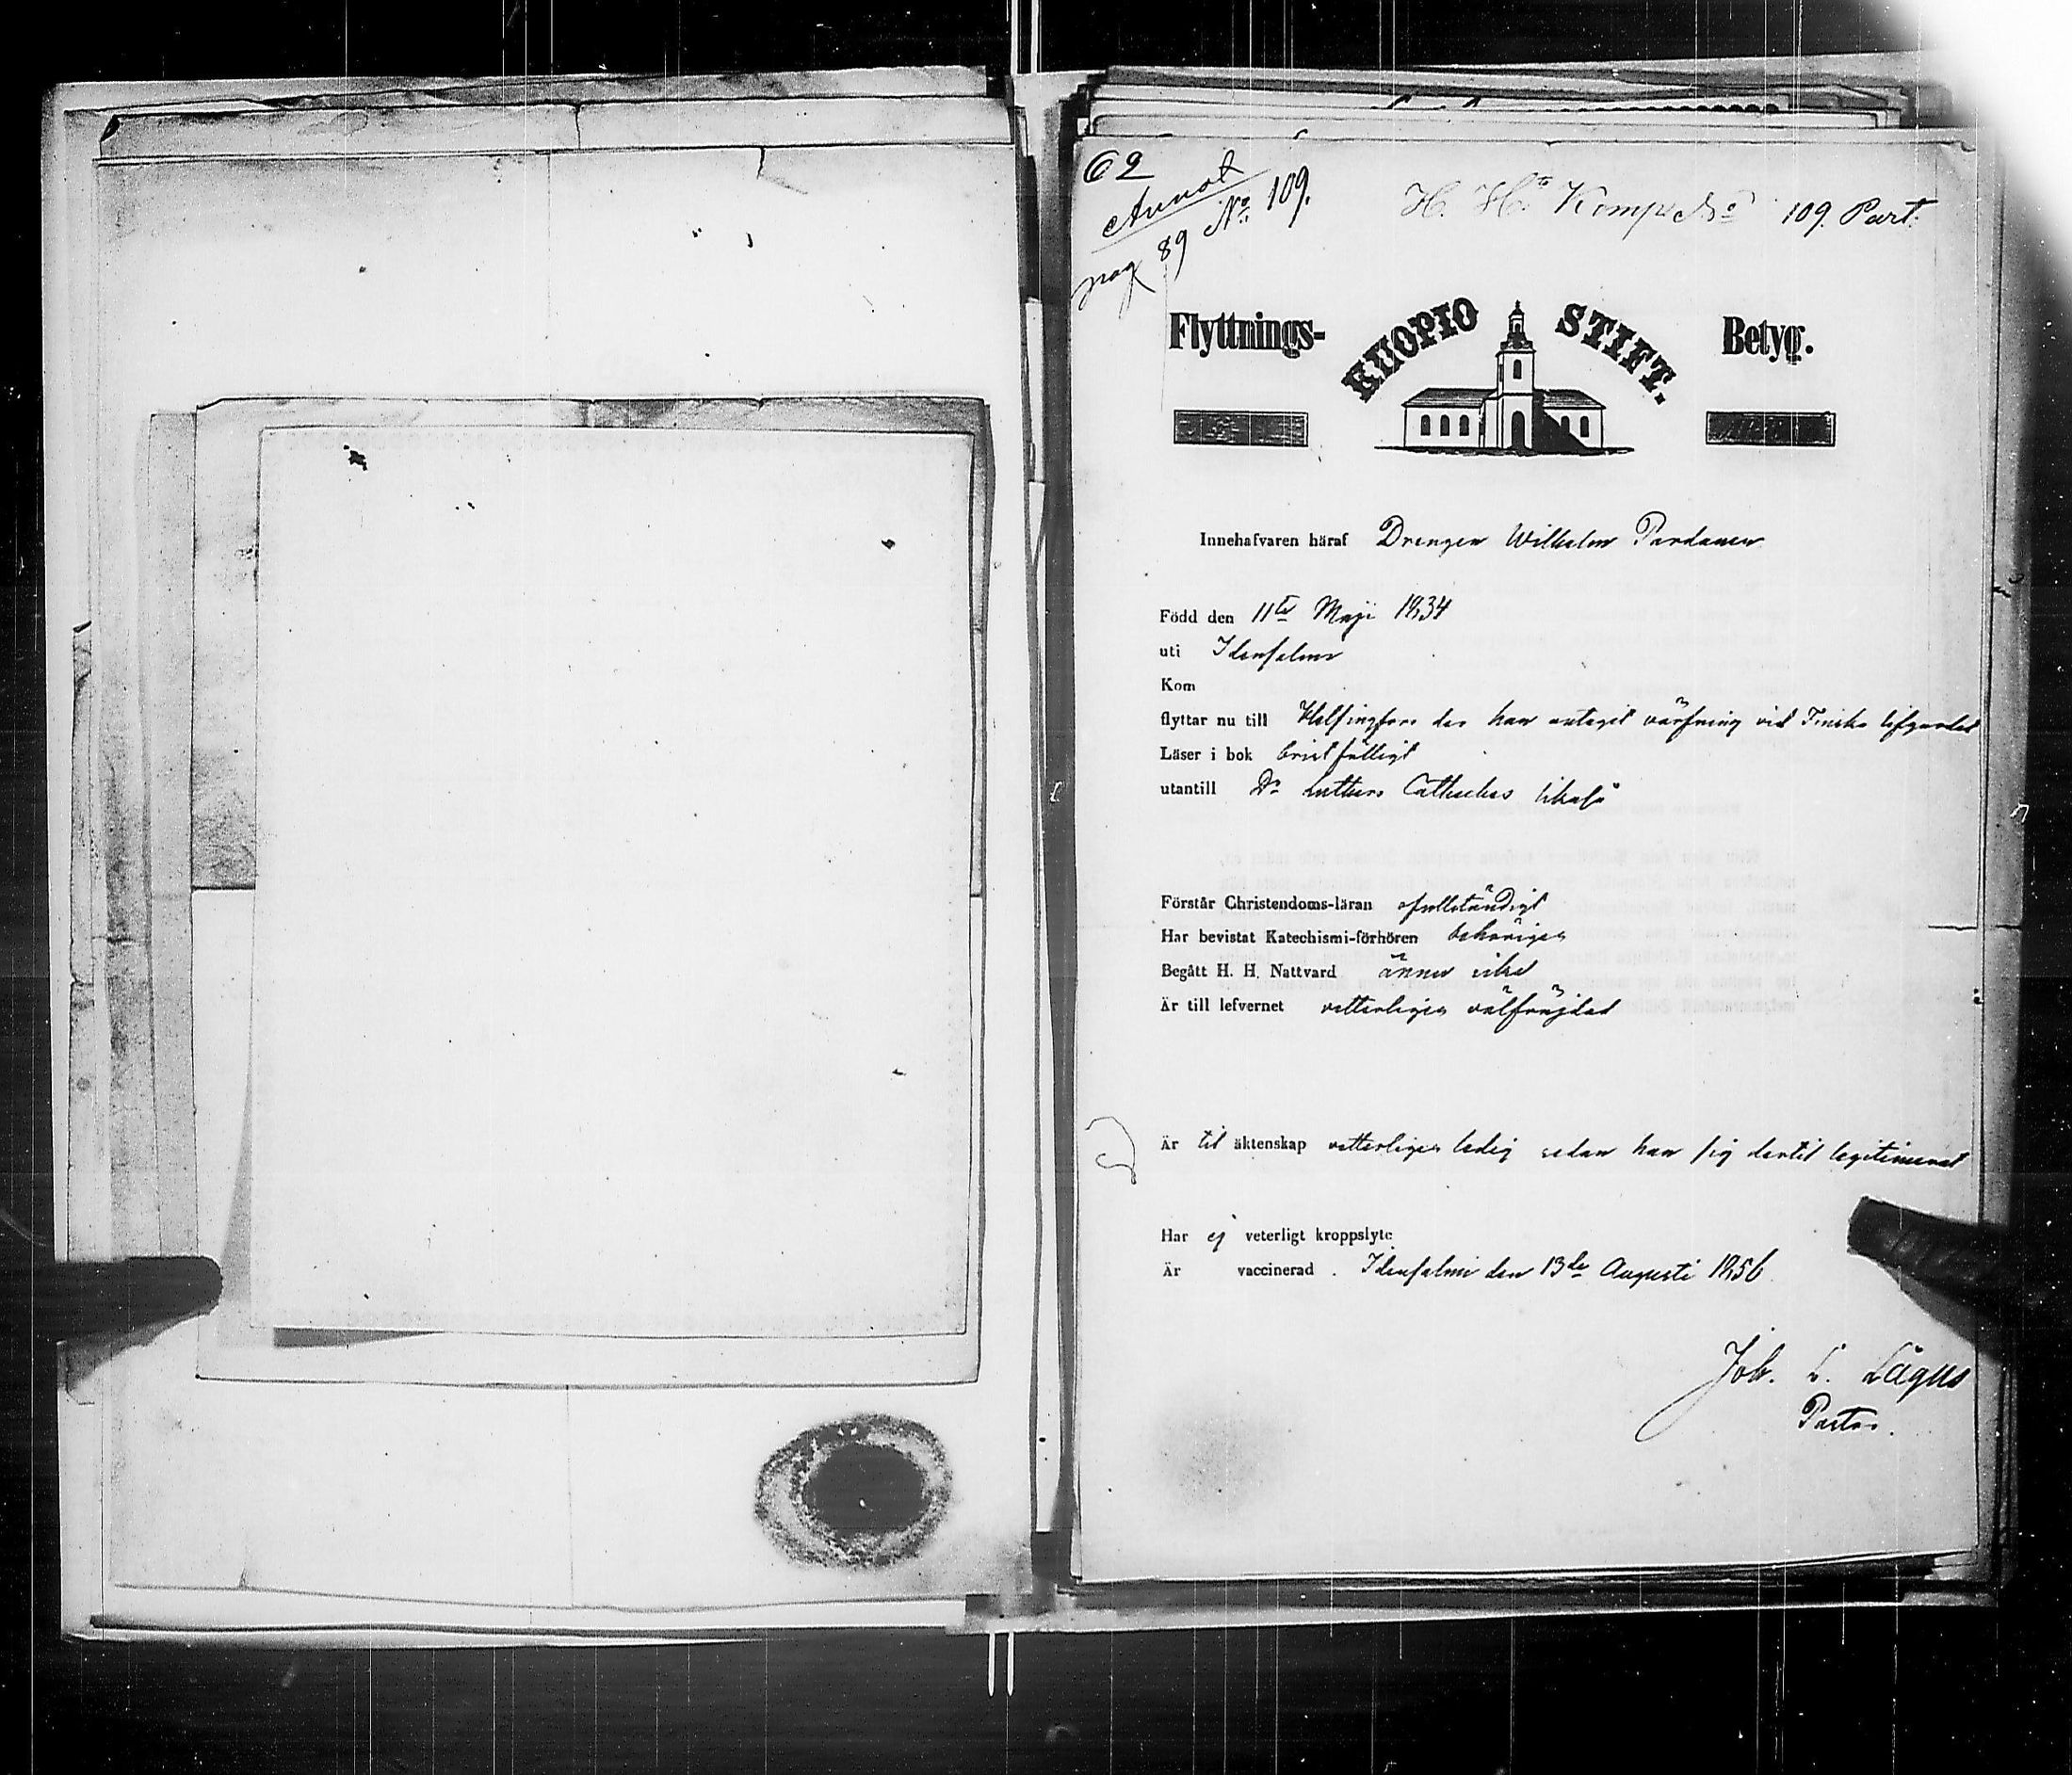 62
Annot
pag 89 No 109.
H. H. Komp No 109. Part.
Flyttnings- KUOPIO STIFT. Betyg.
Innehafvaren häraf Drengen Wilhelm Pardanen
Född den 11te Maji 1834
uti Idensalmi
Kom
flyttar nu till Helsingfors der han antagit värfning vid Finska lifgardet
Läser i bok bristfälligt
utantill Dr Luthers Catheches likaså
Förstår Christendoms-läran ofullständigt
Har bevistat Katechismi-förhören behörigen
Begått H. H. Nattvard ännu icke
Är till lefvernet vetterligen välfräjdad
Är til äktenskap vetterligen ledig sedan han sig dertil legitimerat
Har ej veterligt kroppslyte
Är vaccinerad. Idensalmi den 13de Augusti 1856
Joh. L. Lagus
Pastor.